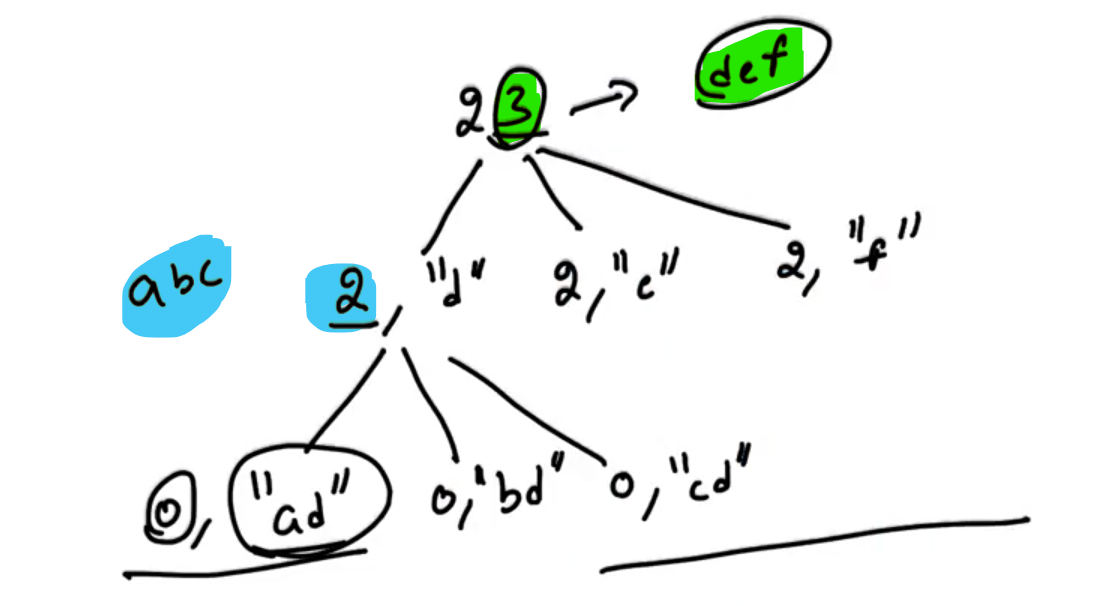 23 → def
abc
2, "d" 2, "c" 2, "f"
0, "ad" 0, "bd" 0, "cd"